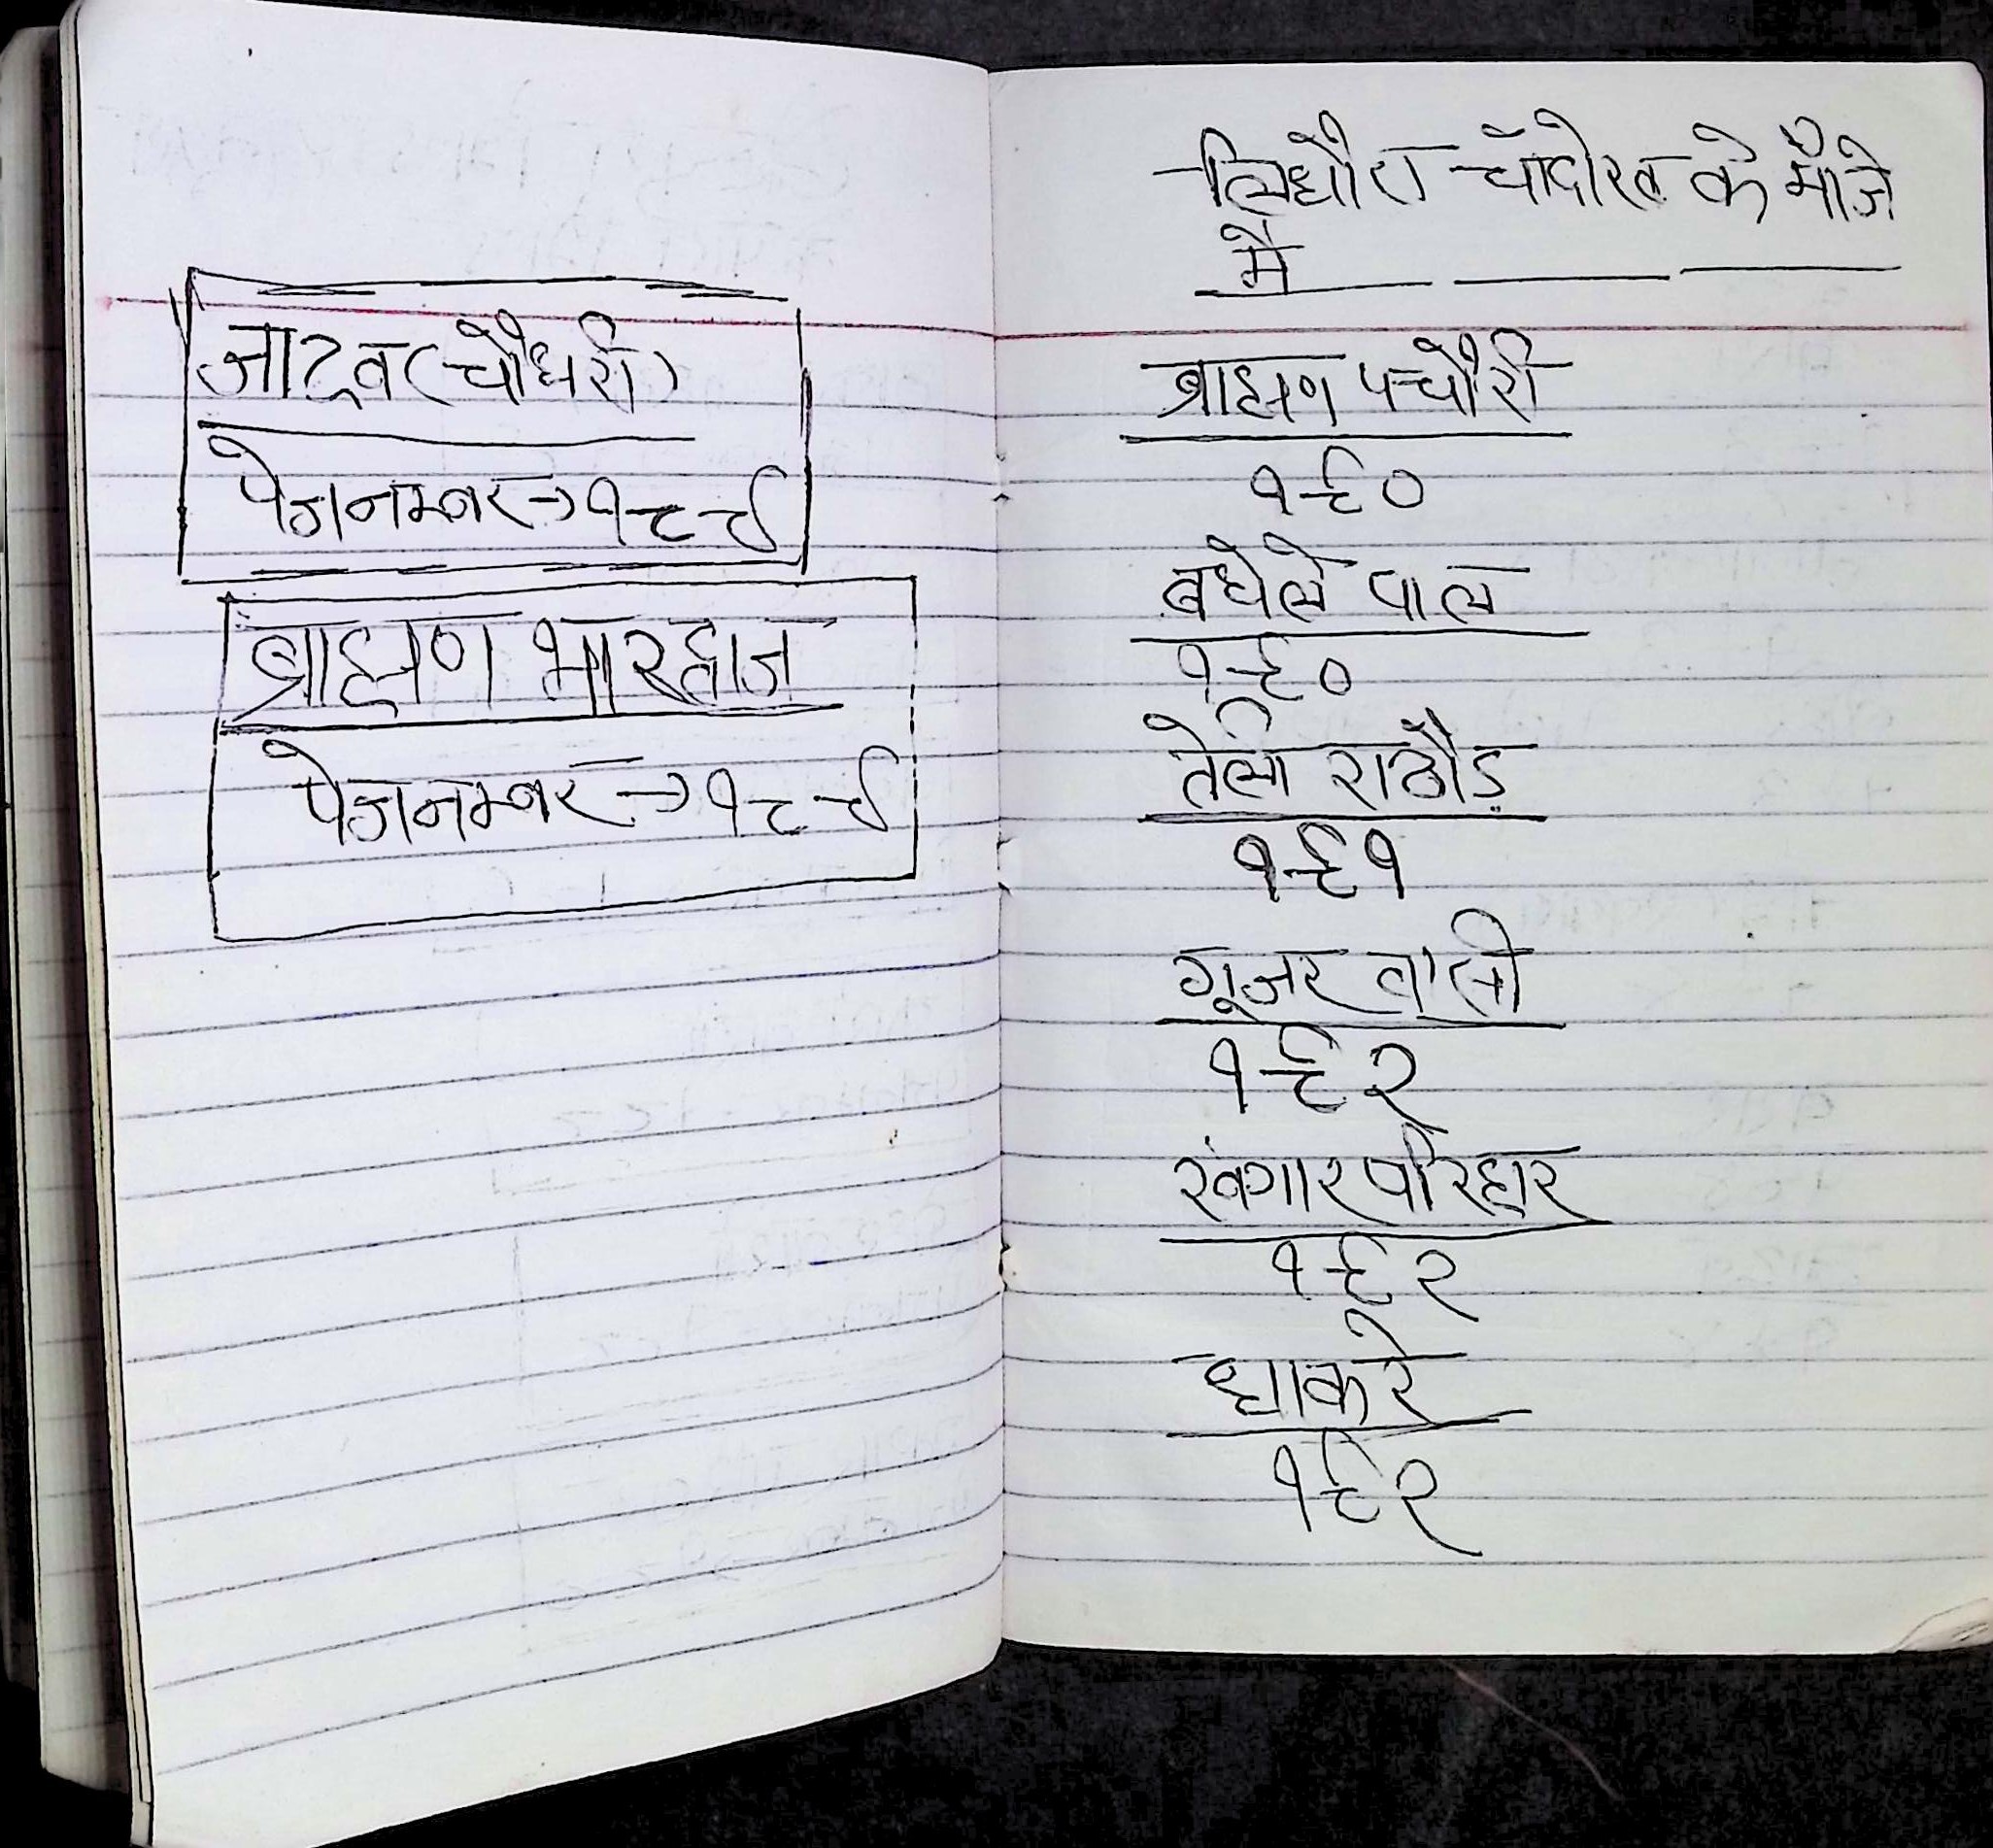 जाटव (चौधरी)
पेज नम्बर → १८९
ब्राह्मण भारद्वाज
पेज नम्बर → १८९
लिधौरा चाँदोख के माँजे
में
ब्राह्मण पचौरी
१९०
बघेले पाल
१९०
तेली राठौड़
१९१
गूजर वासी
१९२
खंगार परिहार
१९२
धाकरे
१९२